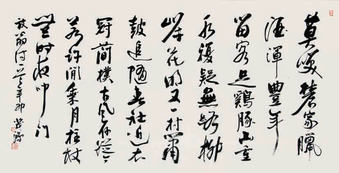 莫笑農家臘
酒渾豐年
留客足鷄豚山重
水複疑無路柳
暗花明又一村簫
鼓追隨春社近衣
冠簡樸古風存從今
若許閒乘月拄杖
無時夜叩門